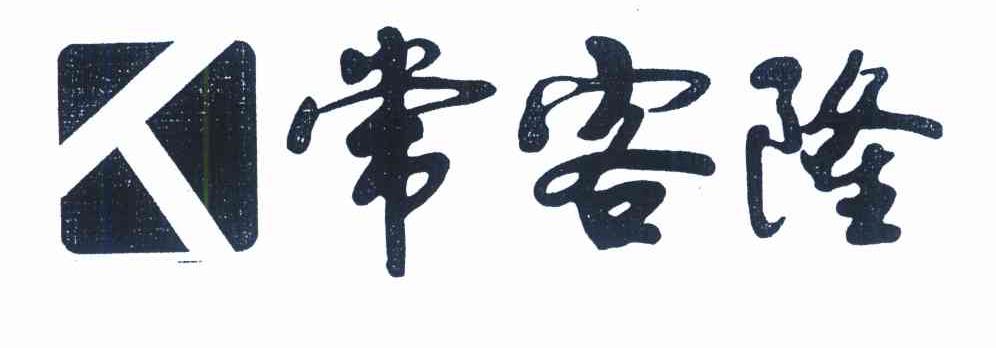 常客隆